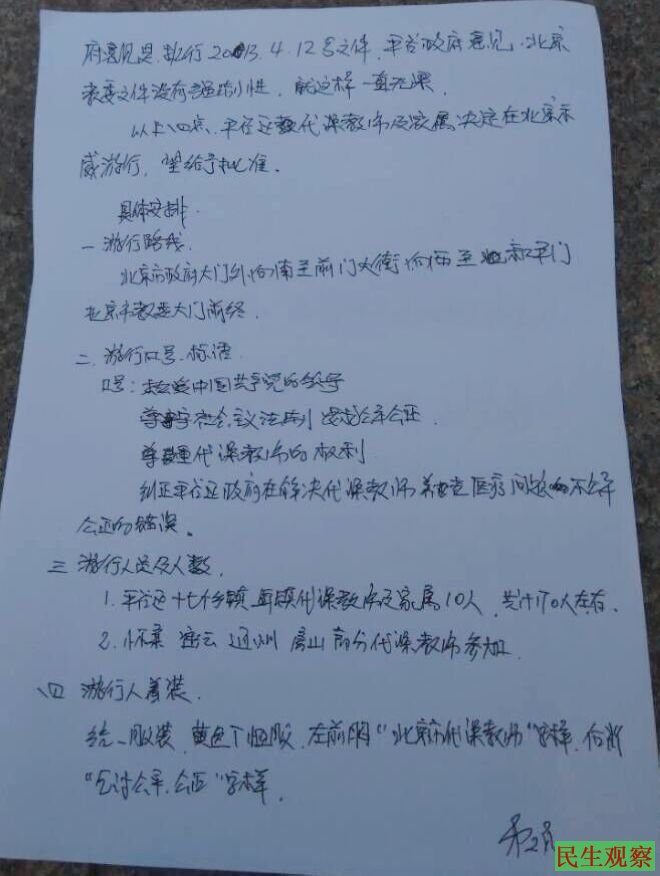 府意见是执行2013.4.12号文件,平谷政府意见,北京
教委文件没有强制性,就这样一直无果.
以上四点,平谷区代课教师及家属决定在北京示
威游行,望给予批准.
具体安排.
一 游行路线.
北京市政府大门外 向南至前门大街 向西至 和平门
北京市教委大门前终.
二. 游行口号.标语
口号: 中国共产党的领导
社会主义法制 公平公正.
尊重代课教师的权利
纠正平谷区政府在解决代课教师养老医疗问题的不公平
公正的错误。
三 游行人员及人数.
1. 平谷区十七个乡镇 每镇代课教师及家属10人 共计170人左右.
2. 怀柔 密云 通州 房山 部分代课教师参加.
四 游行人着装.
统一服装, 黄色T恤衫, 左前胸"北京市代课教师"字样,
"乞讨公平.公正"字样.
民生观察